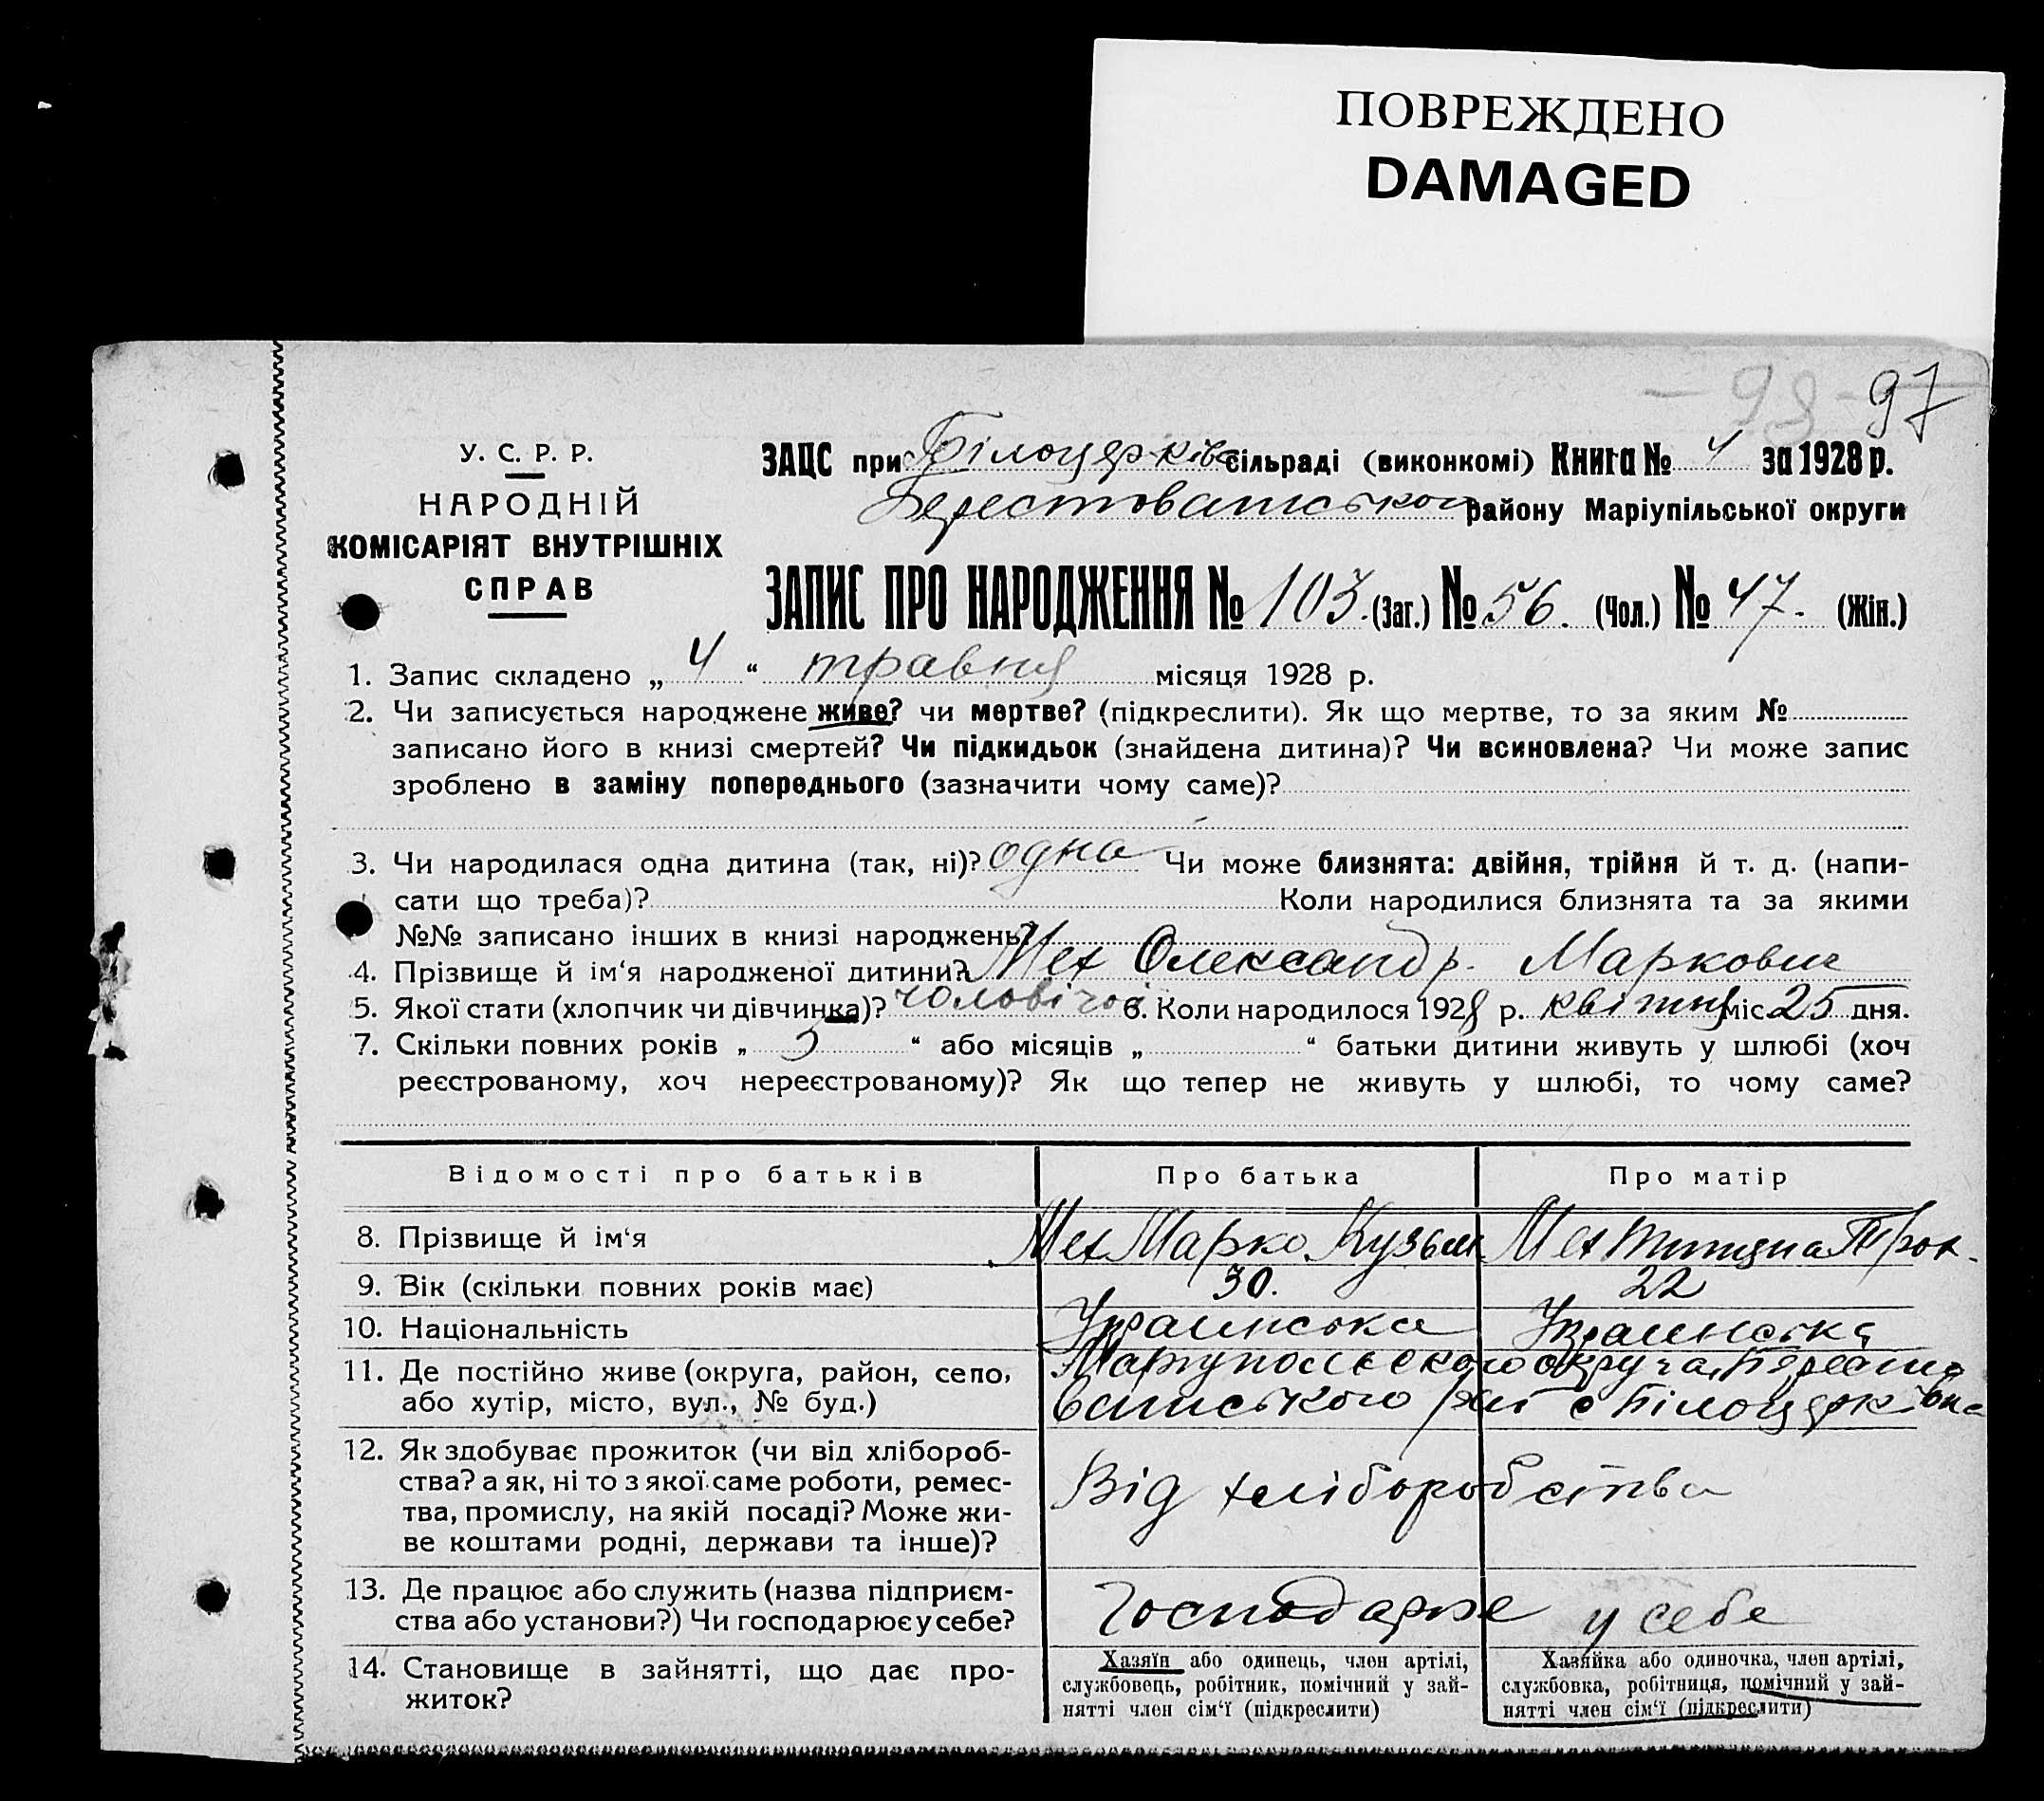 ПОВРЕЖДЕНО
DAMAGED
- 98 - 97
У. С. Р. Р.
НАРОДНІЙ
КОМІСАРІЯТ ВНУТРІШНІХ
СПРАВ
ЗАЦС при Білоцерків сільраді (виконкомі) Книга № 4 за 1928 р.
Берестоватського району Маріупільської округи
ЗАПИС ПРО НАРОДЖЕННЯ № 103. (Заг.) № 56. (Чол.) № 47. (Жін.)
1. Запис складено „ 4 “ травня місяця 1928 р.
2. Чи записується народжене живе? чи мертве? (підкреслити). Як що мертве, то за яким №
записано його в книзі смертей? Чи підкидьок (знайдена дитина)? Чи всиновлена? Чи може запис
зроблено в заміну попереднього (зазначити чому саме)?
3. Чи народилася одна дитина (так, ні)? одна Чи може близнята: двійня, трійня й т. д. (напи-
сати що треба)? Коли народилися близнята та за якими
№№ записано інших в книзі народжень?
4. Прізвище й ім‘я народженої дитини? Мех Олександр. Маркович
5. Якої стати (хлопчик чи дівчинка)? чоловічої 6. Коли народилося 1928 р. квітня міс. 25 дня.
7. Скільки повних років „ 5 “ або місяців „ “ батьки дитини живуть у шлюбі (хоч
реєстрованому, хоч нереєстрованому)? Як що тепер не живуть у шлюбі, то чому саме?
Відомості про батьків Про батька Про матір
8. Прізвище й ім‘я Мех Марко Кузьм Мех
9. Вік (скільки повних років має) 30. 22
10. Національність Украинська Украинська
11. Де постійно живе (округа, район, село, округа Бересто
або хутір, місто, вул., № буд.) ватського рай с Білоцерківка
12. Як здобуває прожиток (чи від хлібороб-
ства? а як, ні то з якої саме роботи, ремес- Від хліборобства
тва, промислу, на якій посаді? Може жи-
ве коштами родні, держави та інше)?
13. Де працює або служить (назва підприєм- Господарює у себе
ства або установи?) Чи господарює у себе?
14. Становище в зайнятті, що дає про- Хазяїн або одинець, член артілі, Хазяйка або одиночка, член артілі,
житок? службовець, робітник, помічний у зай- службовка, робітниця, помічний у зай-
нятті член сім‘ї (підкреслити) нятті член сім‘ї (підкреслити)